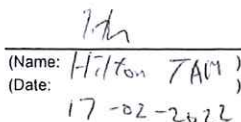 (Name: Hilton TAM )
(Date: )
17-02-2022